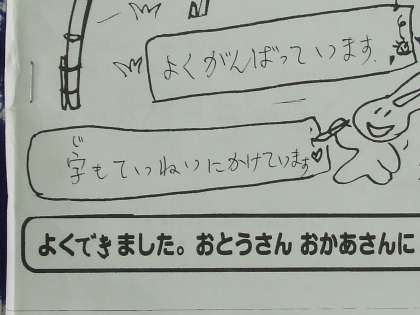 よくがんばっています。
字もていねいにかけています♡
じ
よくできました。おとうさん おかあさんに